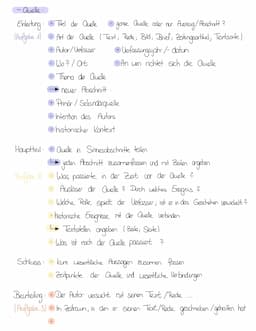 - Quelle
Einleitung Titel der Quelle ganze Quelle oder nur Auszug/Abschnitt?
(Aufgabe 1) Art der Quelle (Text, Rede, Bild, Brief, Zeitungsartikel, Textseite)
Autor/Verfasser Verfassungsjahr/-datum
Wo?/Ort An wen richtet sich die Quelle
Thema der Quelle
→ neuer Abschnitt
Primär/Sekundärquelle
Intention des Autors
historischer Kontext
Hauptteil Quelle in Sinnesabschnitte teilen
→ jeden Abschnitt zusammenfassen und mit Zeilen angeben
Was passierte in der Zeit vor der Quelle?
Auslöser der Quelle? Durch welches Ereignis?
Welche Rolle spielt der Verfasser, ist er in das Geschehen verwickelt?
historische Ereignisse mit der Quelle verbinden
→ Textstellen angeben (Zeile, Seite)
Was ist nach der Quelle passiert?
Schluss kurz wesentliche Aussagen zusammen fassen
Zeitpunkte der Quelle und wesentliche Verbindungen
Beurteilung Der Autor versucht mit seinem Text/Rede ...
(Aufgabe 3) Im Zeitraum, in dem er seinen Text/Rede geschrieben/gehalten hat